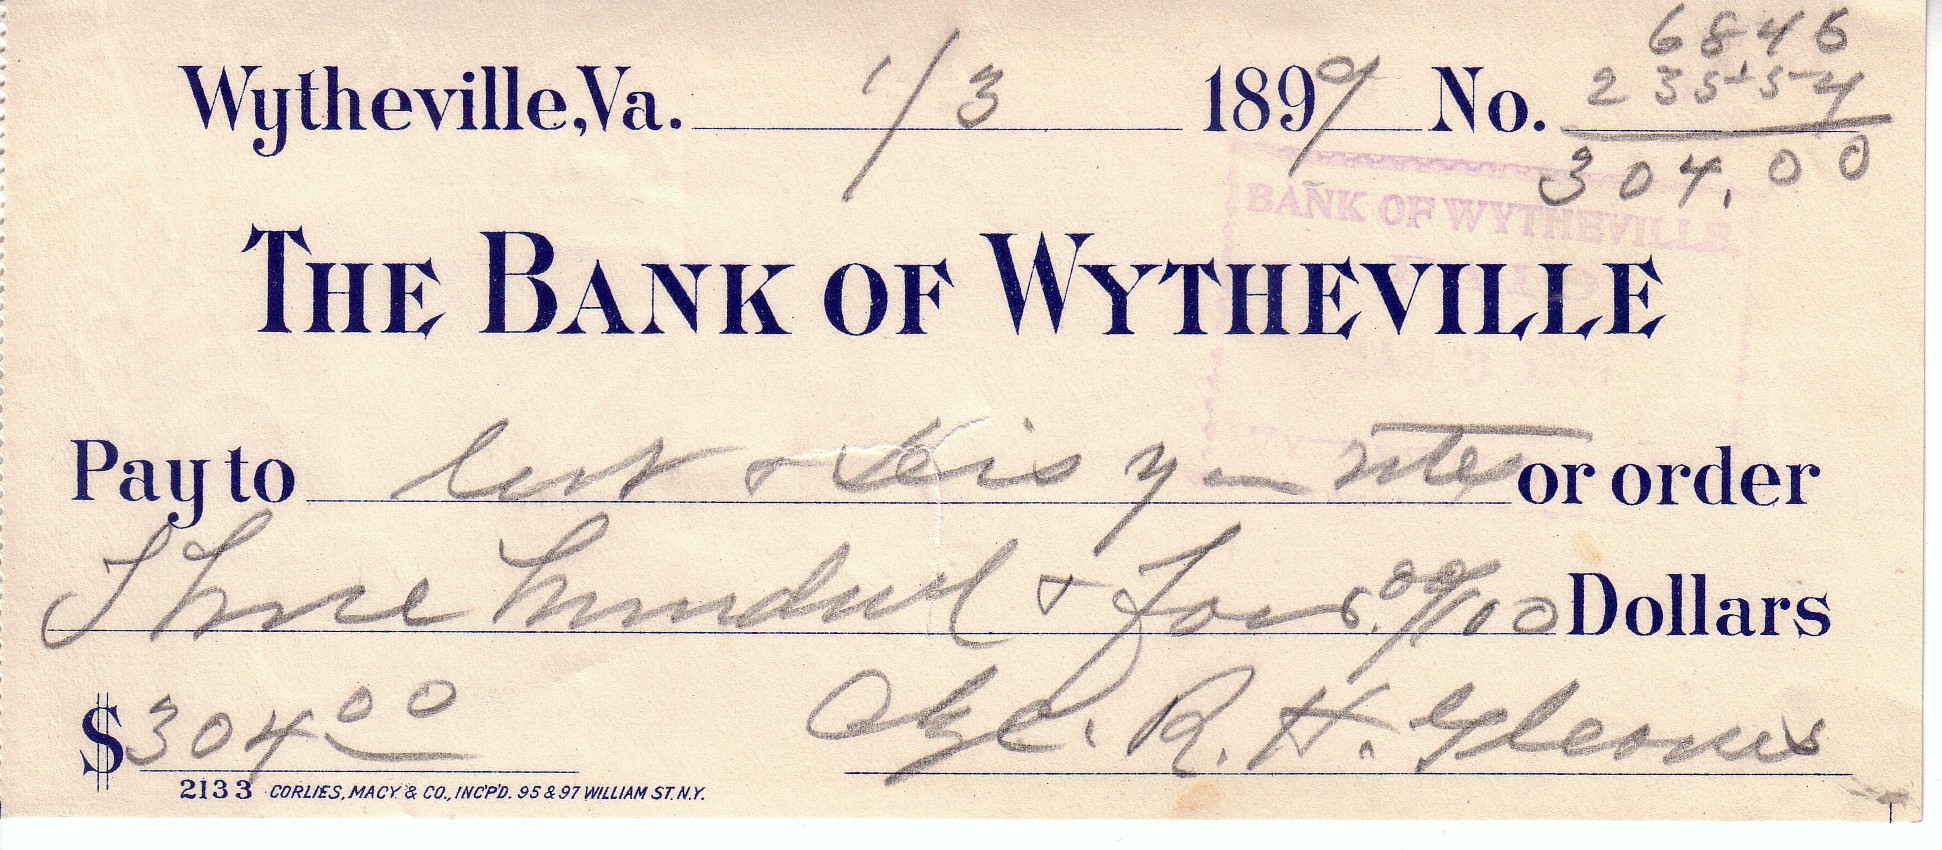 6846
Wytheville, Va. 1/3 1899 No. 23554
304.00
BANK OF WYTHEVILLE
THE BANK OF WYTHEVILLE
Pay to & or order
Three hundred & Four 00/100 Dollars
$304 00 R. H. Gleaves
2133 CORLIES, MACY & CO., INC'P'D. 95 & 97 WILLIAM ST. N.Y.